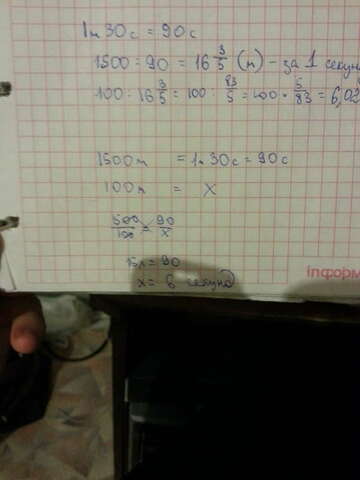 1м 30с = 90с
1500 : 90 = 16 3/5 (м) - за 1 секун
100 : 16 3/5 = 100 : 83/5 = 100 * 5/83 = 6,02
1500м = 1м 30с = 90с
100м = x
1500/100 = 90/x
15x = 90
x = 6 секунд
інформ